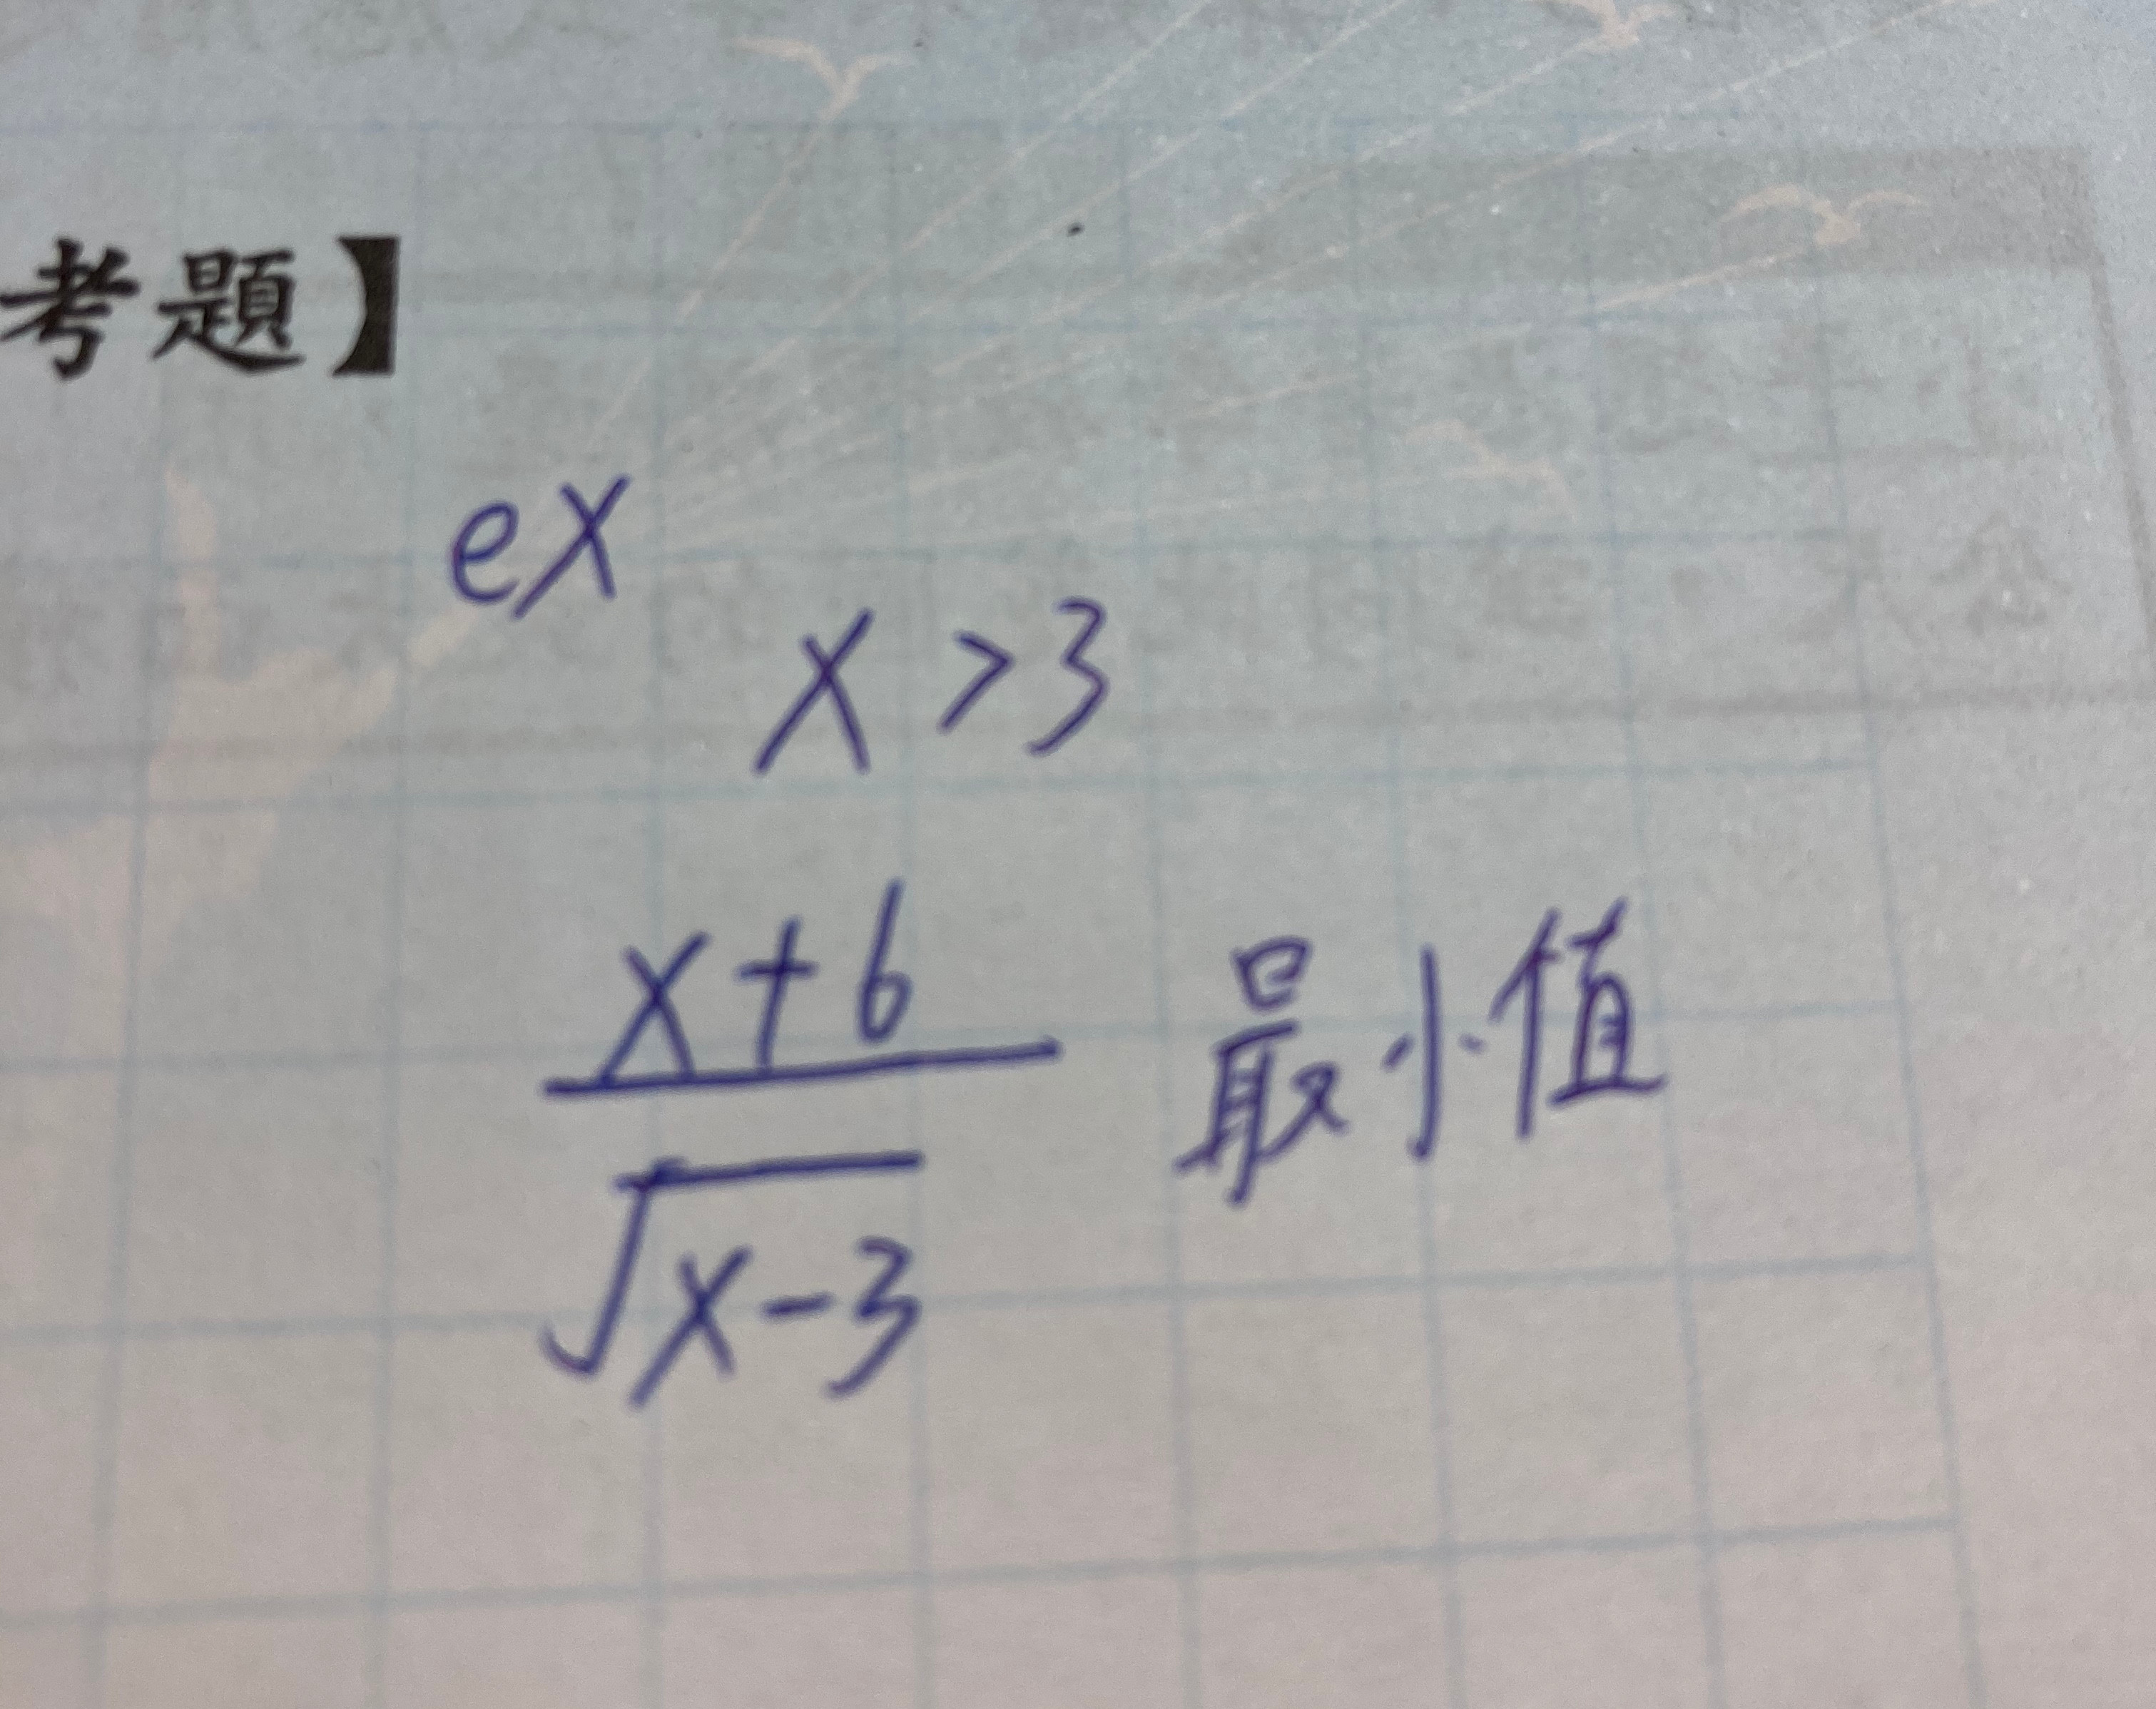 考題】
ex
x>3
x+6
√x-3 最小值